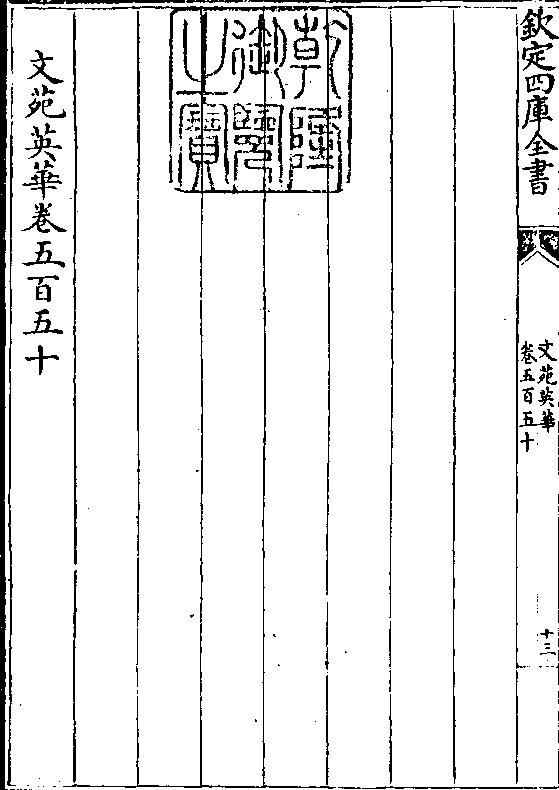 欽定四庫全書
文苑英華
卷五百五十
十三
乾隆
御覽
之寶
文苑英華卷五百五十